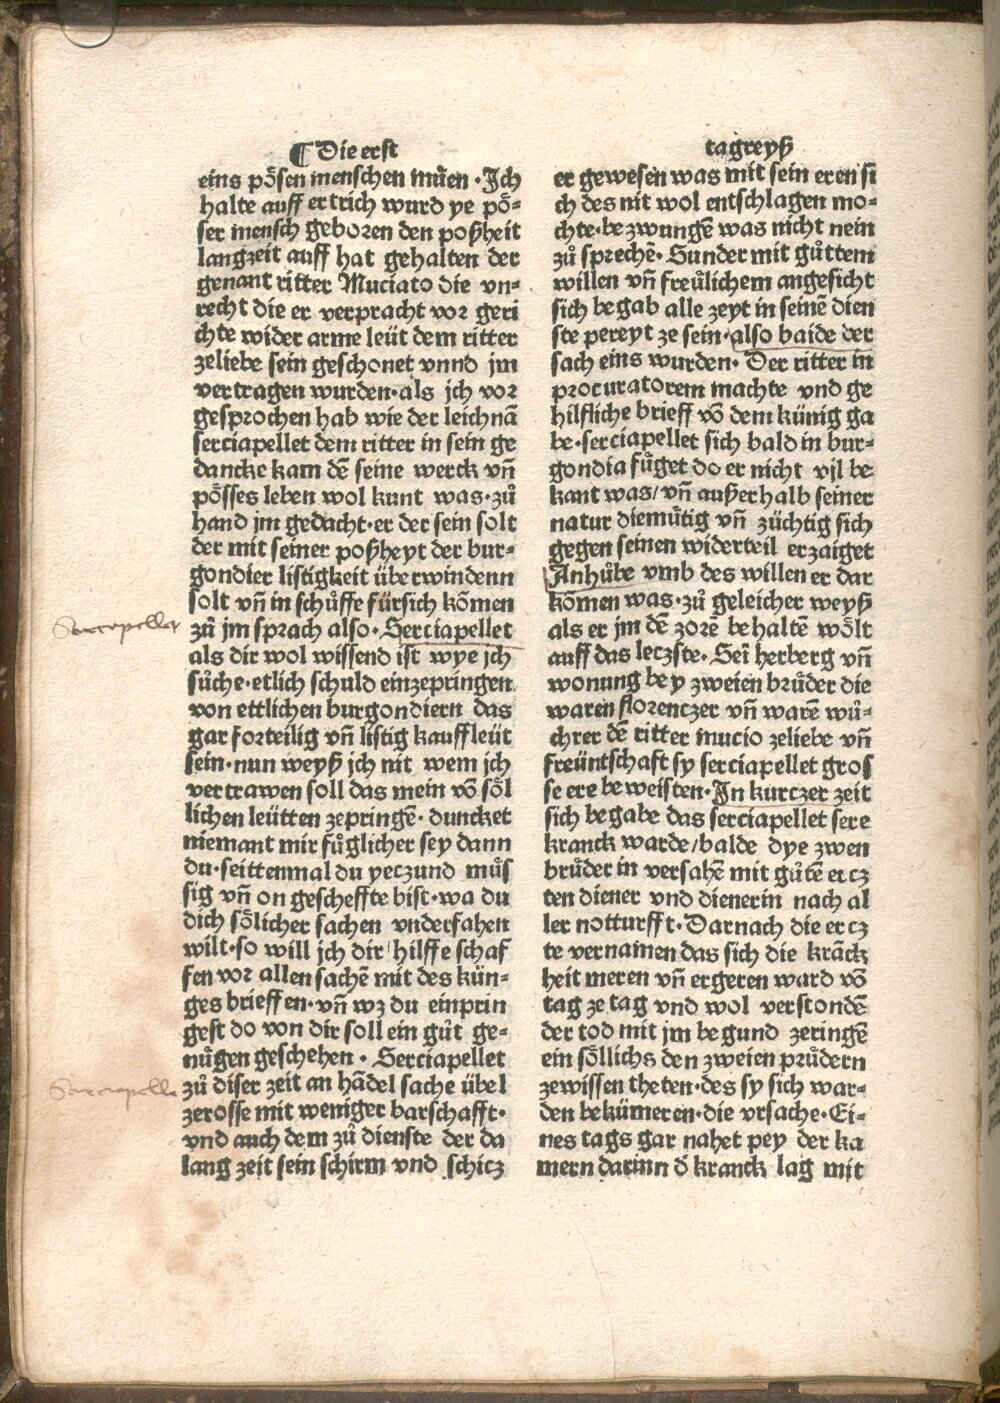 ¶ Die erst
tagreyß
eins pösen menschen muͤen · Ich
halte auff ertrich wurd ye pö⸗
ser mensch geboren den poßheit
langzeit auff hat gehalten der
genant ritter Muciato die vn⸗
recht die er verpracht vor geri
chte wider arme leüt dem ritter
zeliebe sein geschonet vnnd jm
vertragen wurden·als jch vor
gesprochen hab wie der leichnā
serciapellet dem ritter in sein ge
dancke kam dē seine werck vn̄
pösses leben wol kunt was·zuͦ
hand jm gedacht·er der sein solt
der mit seiner poßheyt der bur⸗
gondier listigkeit überwindenn
solt vn̄ in schuͦffe fürsich kōmen
Serciapelletꝰ
zuͦ jm sprach also·Serciapellet
als dir wol wissend ist wye jch
suͦche·etlich schuld einzepringen
von ettlichen burgondiern das
gar forteilig vn̄ listig kauffleüt
sein·nun weyß jch nit wem jch
vertrawen soll das mein vō söl
lichen leütten zepringē·duncket
niemant mir fuͤglicher sey dann
du·seittenmal du yeczund muͤs
sig vn̄ on gescheffte bist·wa du
dich sölicher sachen vnderfahen
wilt·so will jch dir hilffe schaf
fen vor allen sachē mit des kün⸗
ges brieffen·vn̄ wz du einprin
gest do von dir soll ein guͦt ge⸗
nuͤgen geschehen · Serciapellet
Serciapelle
zuͦ diser zeit an hādel sache übel
zerosse mit weniger barschafft·
vnd auch dem zuͦ dienste der da
lang zeit sein schirm vnd schicz
er gewesen was mit sein eren si
ch des nit wol entschlagen mo⸗
chte·bezwungē was nicht nein
zuͦ sprechē·Sunder mit guͦttem
willen vn̄ freüͤlichem angesicht
sich begab alle zeyt in seinē dien
ste pereyt ze sein·also baide der
sach eins wurden· Der ritter in
procuratorem machte vnd ge
hilfliche brieff vō dem künig ga
be·serciapellet sich bald in bur⸗
gondia fuͤget do er nicht vjl be
kant was/vn̄ außerhalb seiner
natur diemuͤtig vn̄ züchtig sich
gegen seinen widerteil erzaiget
Anhuͦbe vmb des willen er dar
kōmen was·zuͦ geleicher weyß
als er jm dē zorē behaltē wölt
auff das leczste·Sei herberg vn̄
wonung bey zweien bruͤder die
waren florenczer vn̄ warē wuͦ⸗
chrer dē ritter mucio zeliebe vn̄
freüntschaft sy serciapellet gros
se ere beweisten·In kurczer zeit
sich begabe das serciapellet sere
kranck warde/balde dye zwen
bruͤder in versahē mit guͦtē ercz
ten diener vnd dienerin nach al
ler notturfft·Darnach die ercz
te vernamen das sich die krāck
heit meren vn̄ ergeren ward vō
tag ze tag vnd wol verstondē
der tod mit jm begund zeringē
ein söllichs den zweien pruͤdern
zewissen theten·des sy sich war⸗
den bekümeren·die vrsache·Ei⸗
nes tags gar nahet pey der ka
mern darinn d̄ kranck lag mit